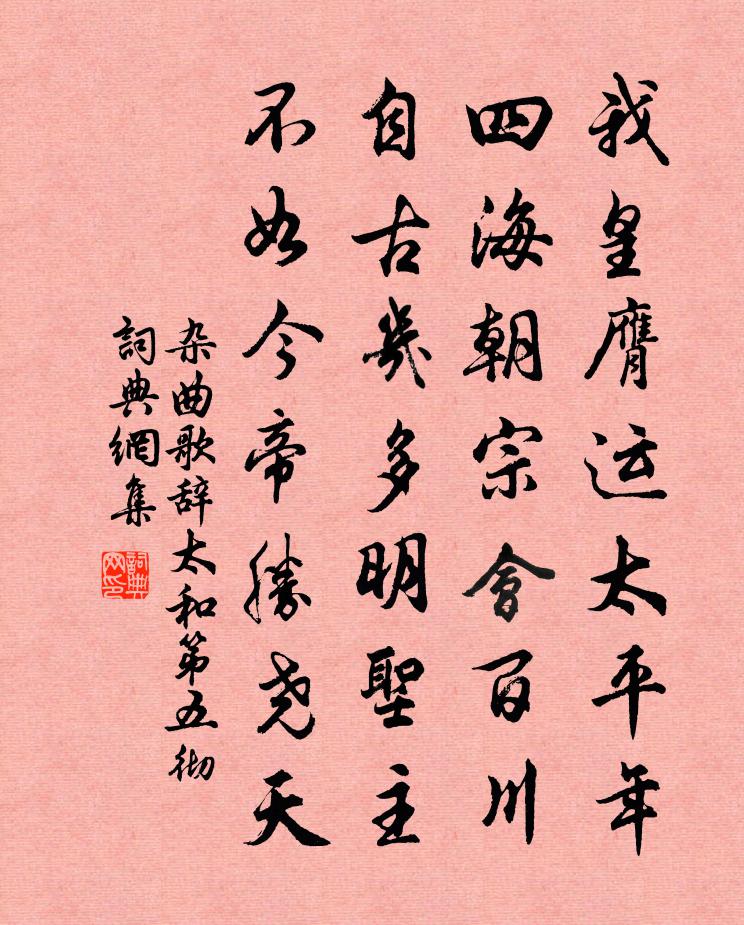 我皇膺运太平年
四海朝宗會百川
自古幾多明聖主
不如今帝勝尧天
杂曲歌辞太和第五彻
詞典網集
詞典網印